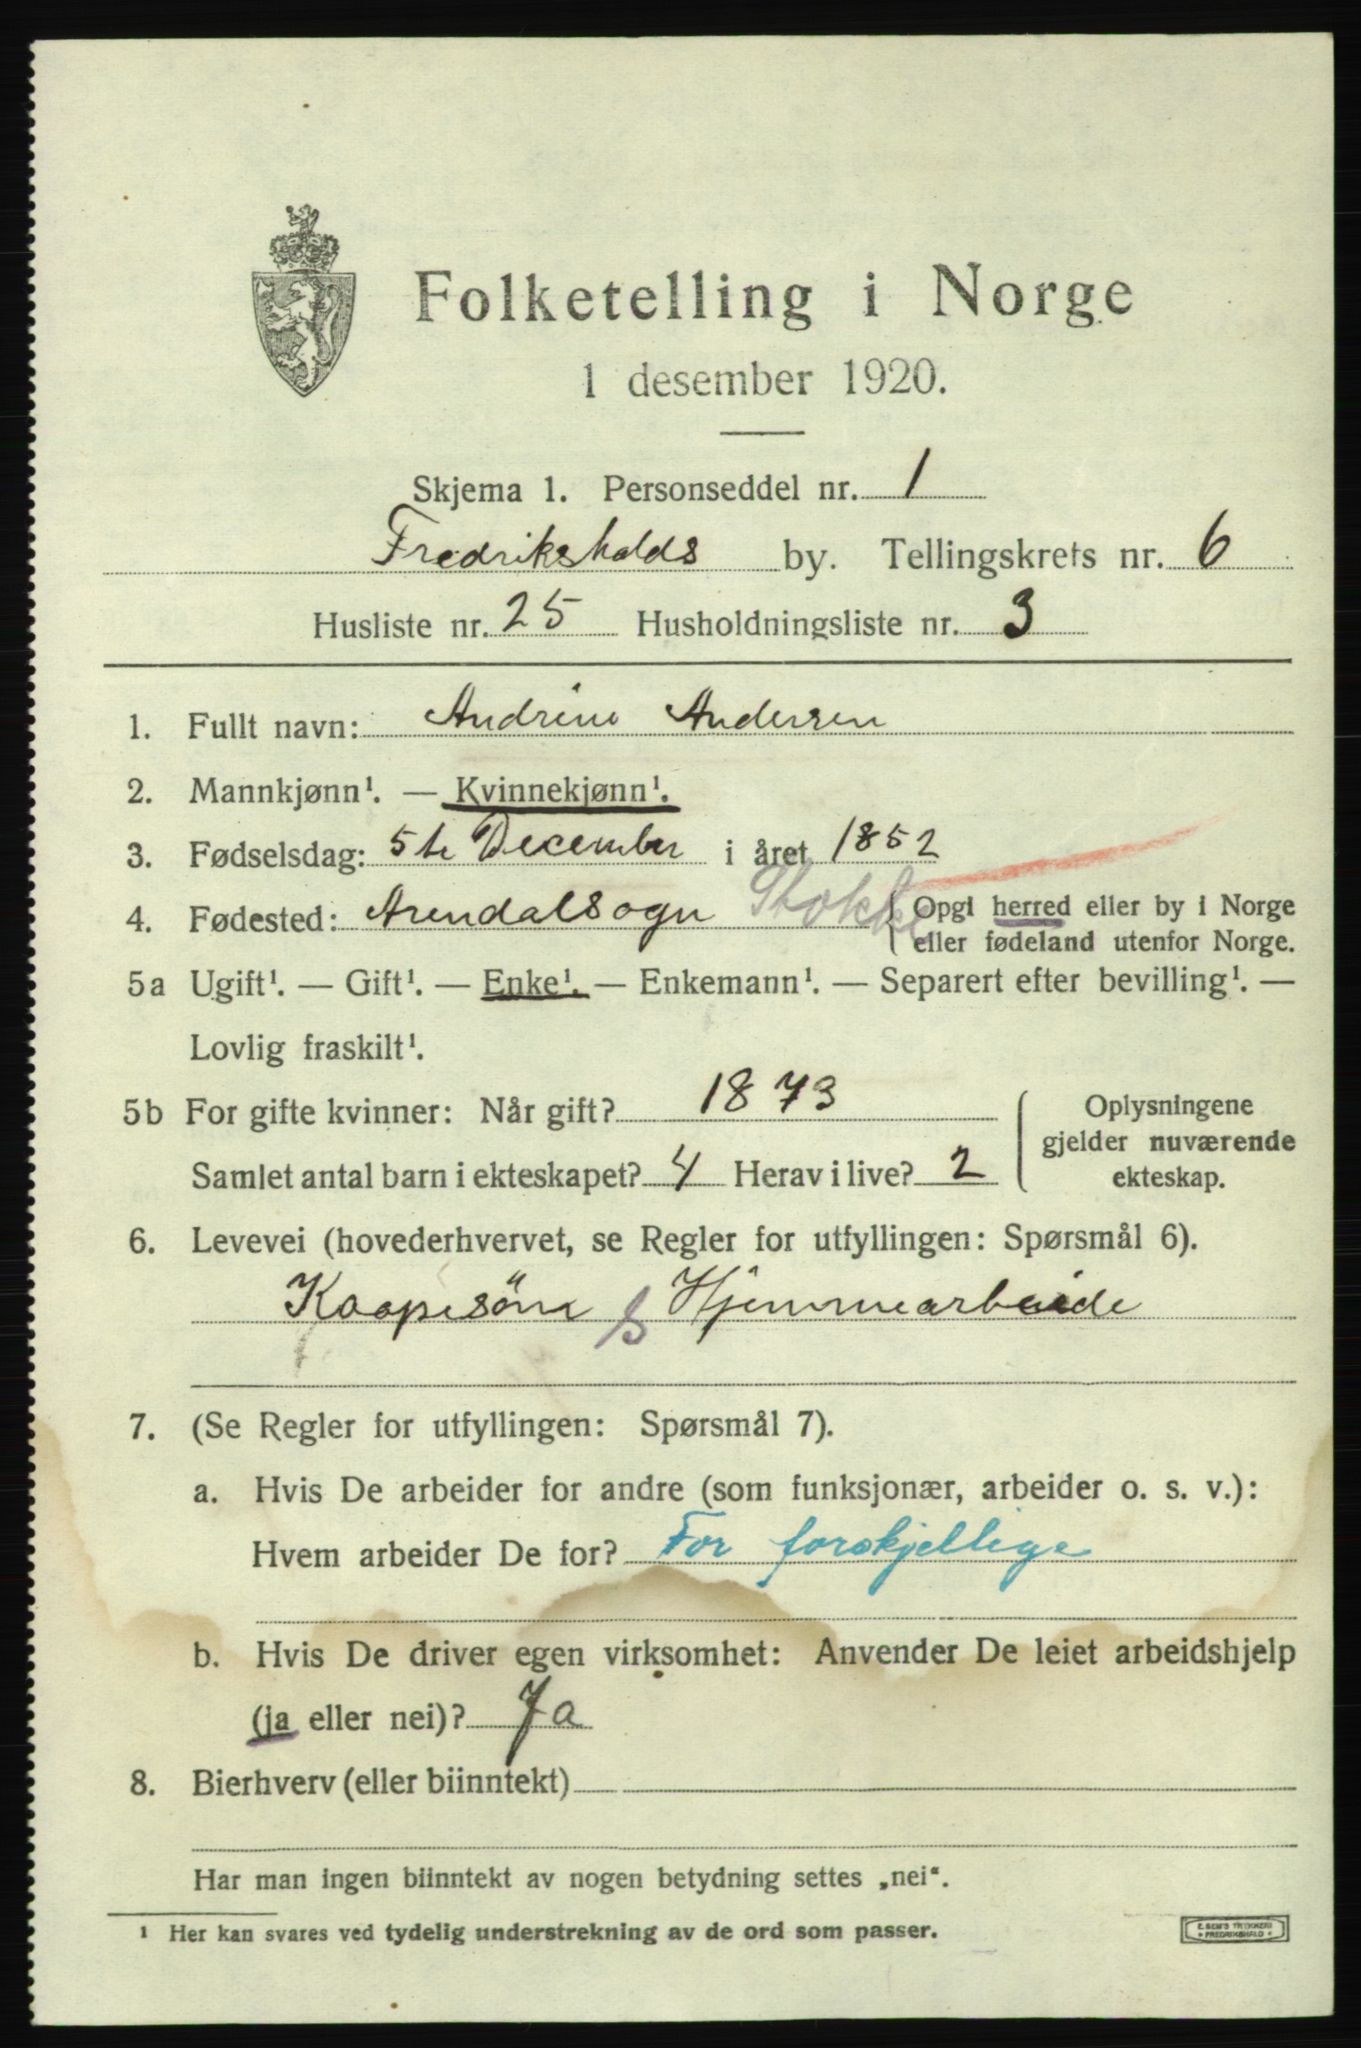 Folketelling i Norge
1 desember 1920.
Skjema 1. Personseddel nr. 1
Fredrikshalds by. Tellingskrets nr. 6
Husliste nr. 25 Husholdningsliste nr. 3
1. Fullt navn: Andrine Andersen
2. Mannkjønn¹. — Kvinnekjønn¹.
3. Fødselsdag: 5te December i året 1852
4. Fødested: Arendalsogn Stokke Opgi herred eller by i Norge
eller fødeland utenfor Norge.
5a Ugift¹. — Gift¹. — Enke¹. — Enkemann¹. — Separert efter bevilling¹. —
Lovlig fraskilt¹.
5b For gifte kvinner: Når gift? 1873
Samlet antal barn i ekteskapet? 4 Herav i live? 2
Oplysningene
gjelder nuværende
ekteskap.
6. Levevei (hovederhvervet, se Regler for utfyllingen: Spørsmål 6).
Kaapesöm S Hjemmearbeide
7. (Se Regler for utfyllingen: Spørsmål 7).
a. Hvis De arbeider for andre (som funksjonær, arbeider o. s. v.):
Hvem arbeider De for? For forskjellige
b. Hvis De driver egen virksomhet: Anvender De leiet arbeidshjelp
(ja eller nei)? Ja
8. Bierhverv (eller biinntekt)
Har man ingen biinntekt av nogen betydning settes „nei“.
¹ Her kan svares ved tydelig understrekning av de ord som passer.
E. SEM'S TRYKKERI
• FREDRIKSHALD •